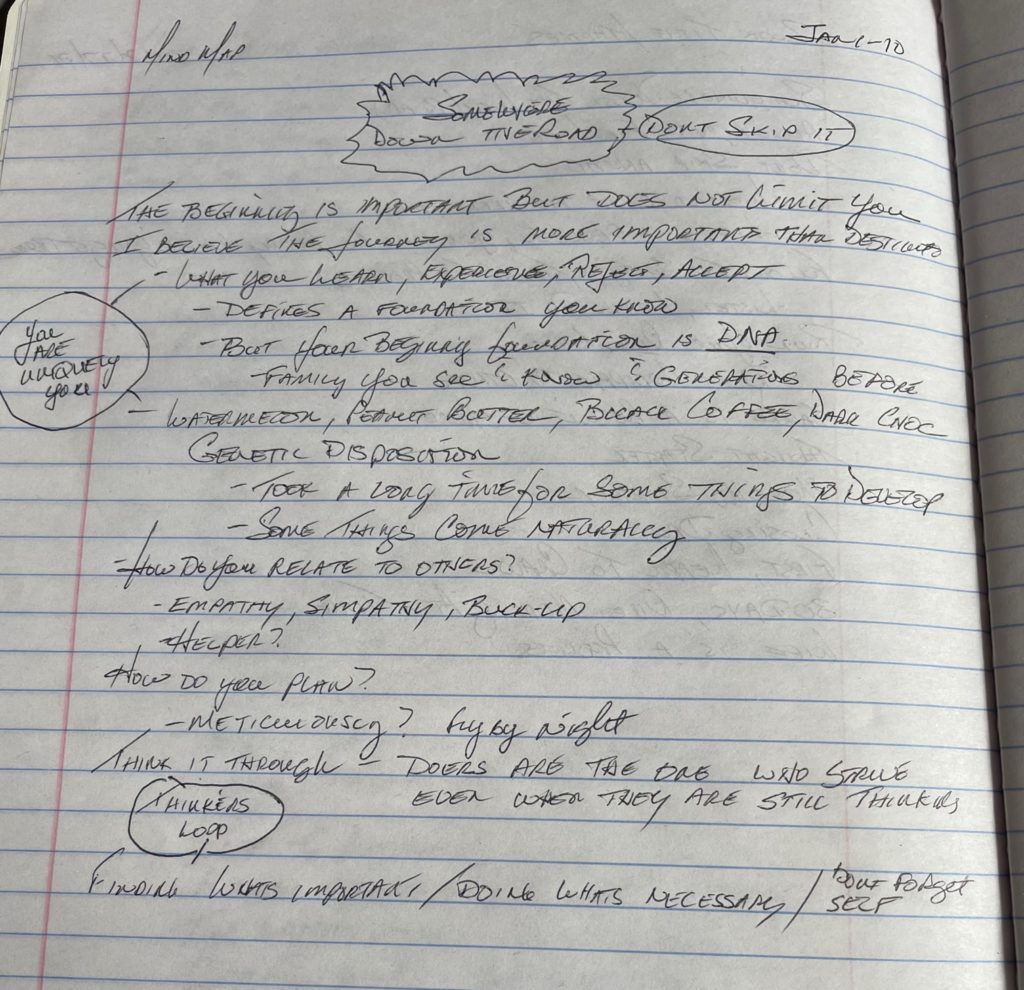 Mind Map
Jan 1-10
Somewhere
Down the Road
Dont Skip it
The Beginning is important But Does not limit you
I Believe the Journey is more important than
- What you Learn, Experience, Reject, Accept
- Defines a foundation you know
You
Are
uniquely
you
- But your Beginning foundation is DNA.
Family you see & know & Generations Before
- Watermelon, Peanut Butter, Black Coffee, Dark Choc
Genetic Disposition
- Took a long time for some things to Develop
- Some Things Come Naturally
- How Do you Relate to others?
- Empathy, Simpathy, Buck-up
- Helper?
How do you plan?
- Meticulously? fly by night
Think it through - Doers are the one who strive
even when they are still thinking
Thinkers
Loop
Finding Whats important / Doing whats necessary / Dont forget
Self